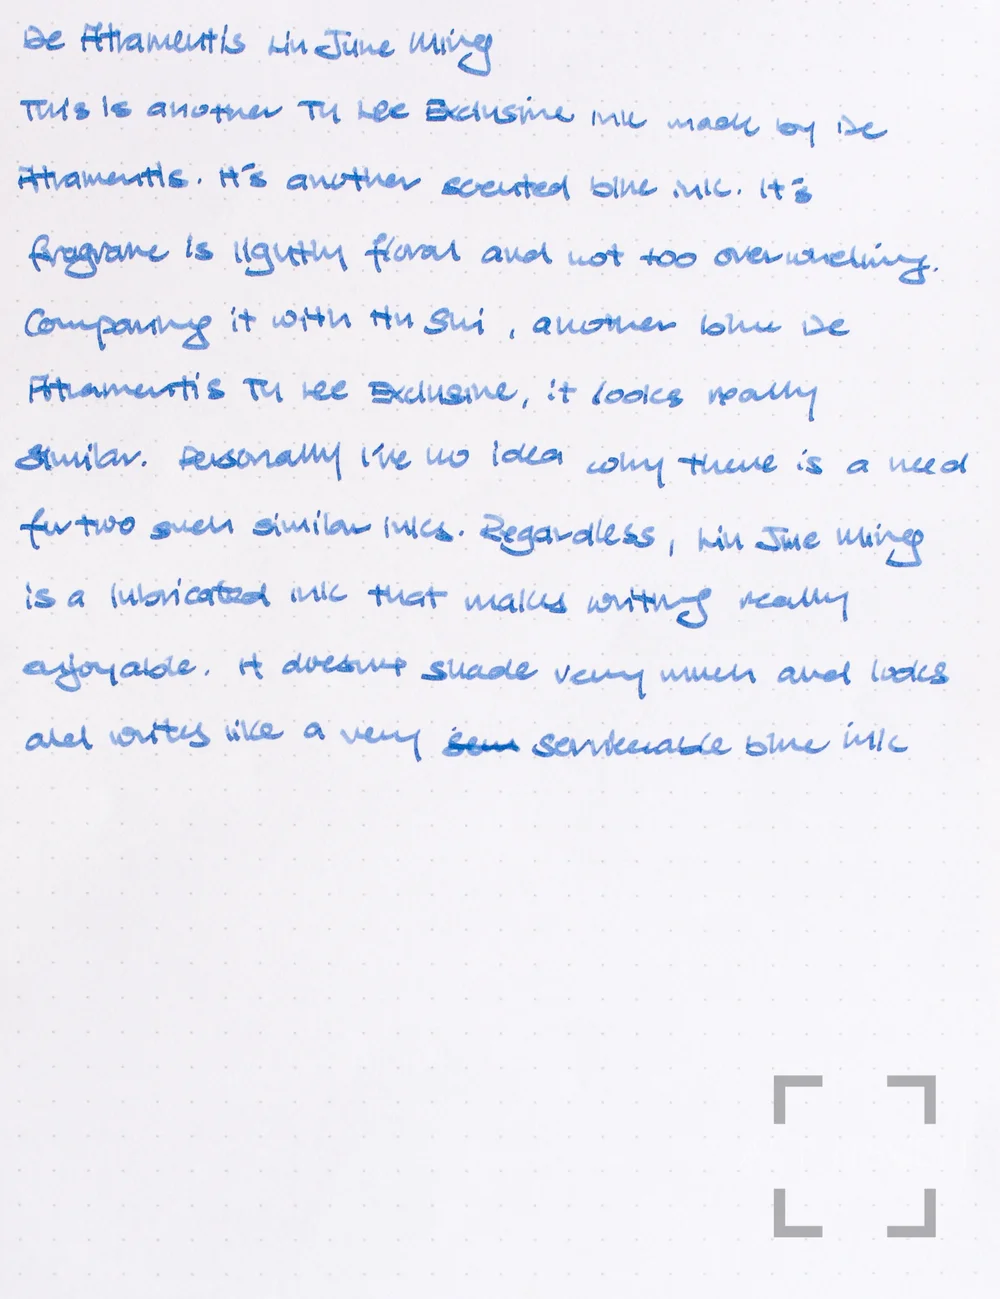 De Atramentis Lin June Ming
This is another TY Lee Exclusive ink made by De
Atramentis. It's another scented blue ink. It's
fragrance is lightly floral and not too overwhelming.
Comparing it with Hu Shi, another blue De
Atramentis TY Lee Exclusive, it looks really
similar. Personally I've no idea why there is a need
for two such similar inks. Regardless, Lin June Ming
is a lubricated ink that makes writing really
enjoyable. It doesn't shade very much and looks
and writes like a very serviceable blue ink